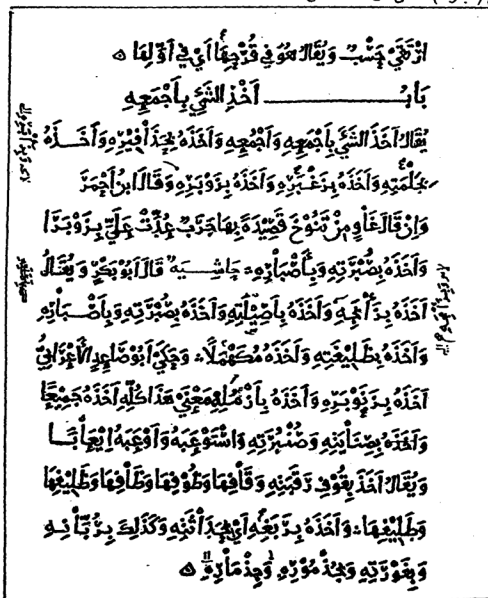 ويقال هو في قرحها أي في أولها
باب أخذ الشيء بأجمعه
يقال أخذ الشيء بأجمعه وأجمعه وأخذه بحذافيره وأخذه
بجلمته وأخذه بزغبره وأخذه بزوبره وقال ابن أحمر
وإن قال غاو من تنوخ قصيدة بها جرب عدت علي بزوبرا
وأخذه بصبرته وبأصباره حاشية قال أبو بكر ويقال
أخذه بزأمجه وأخذه بأصيلته وأخذه بصبرته وبأصباره
وأخذه بظليفته وأخذه مكهملا وحكى أبو صاعد الأعرابي
أخذه بزوبره وأخذه بأزمله معنى هذا كله أخذه جميعا
وأخذه بصنايته واستوعبه وأوعبه إيعابا
ويقال أخذ بقوف رقبته وقافها وظوفها وظافها وظليفها
وأخذه بربغه أي بحداثته وكذلك بربانه